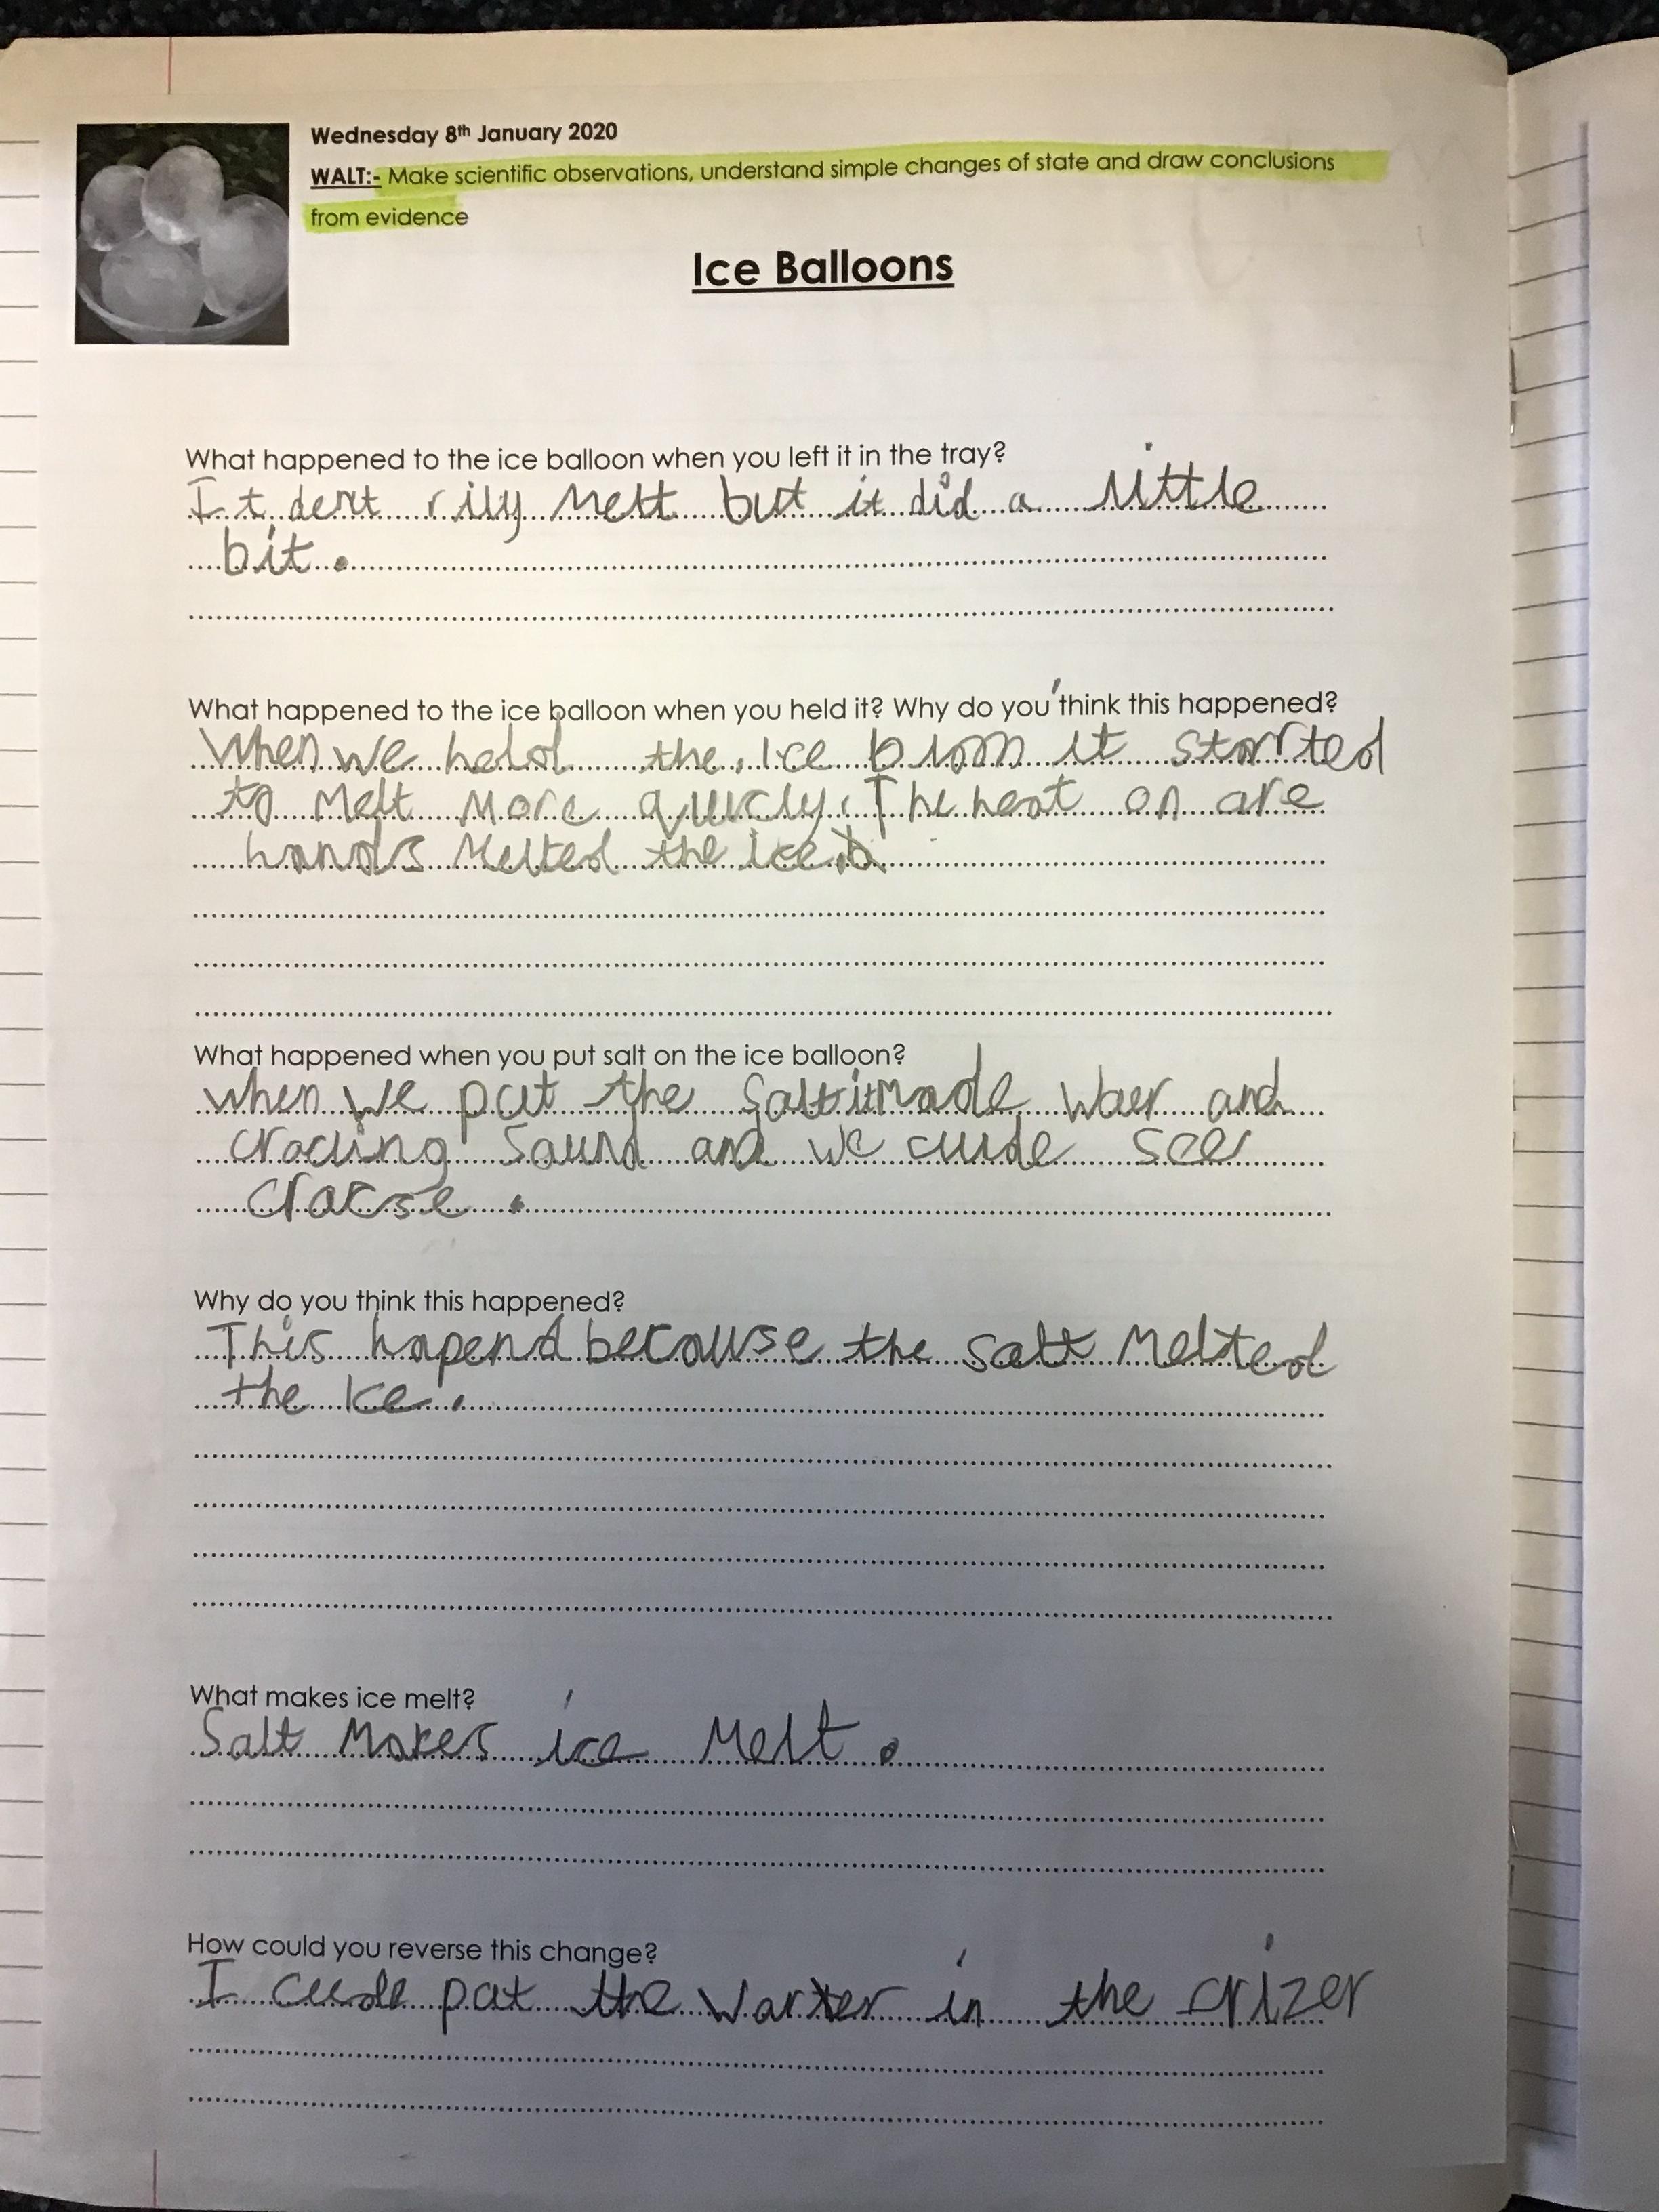 Wednesday 8th January 2020
WALT:- Make scientific observations, understand simple changes of state and draw conclusions
from evidence
Ice Balloons
What happened to the ice balloon when you left it in the tray?
It dent rily Melt but it did a little
bit.
What happened to the ice balloon when you held it? Why do you think this happened?
When we held the Ice bloon it started
to Melt More quicly. The heat on are
hands Melted the ice.
What happened when you put salt on the ice balloon?
when we put the Salt it Made and
cracing Sound and we cude see
cracse.
Why do you think this happened?
This hapend because the Salt Melted
the Ice.
What makes ice melt?
Salt Makes ice Melt.
How could you reverse this change?
I cude put the Warter in the